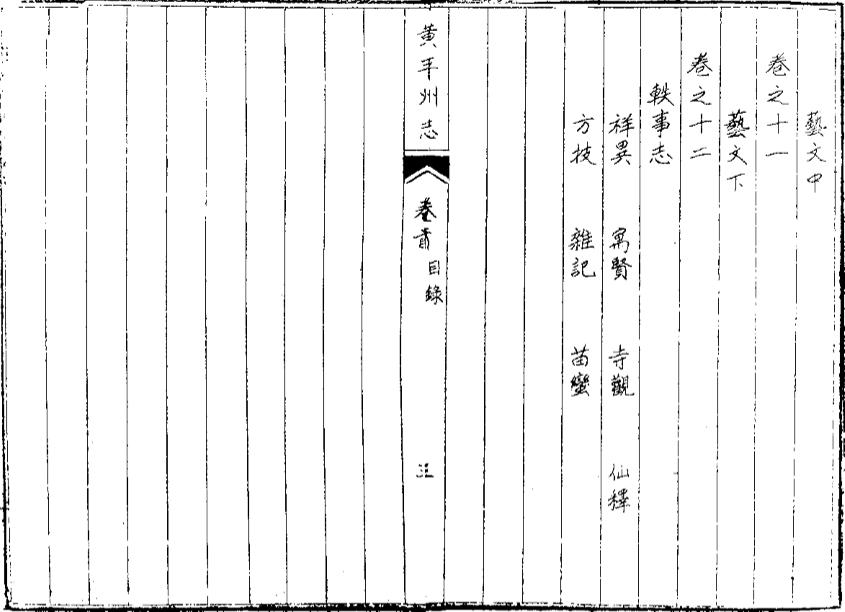 藝文中
卷之十一
藝文下
卷之十二
軼事志
祥異 寓賢 寺觀 仙釋
方技 雜記 苗蠻
黃平州志
卷首 目錄
五